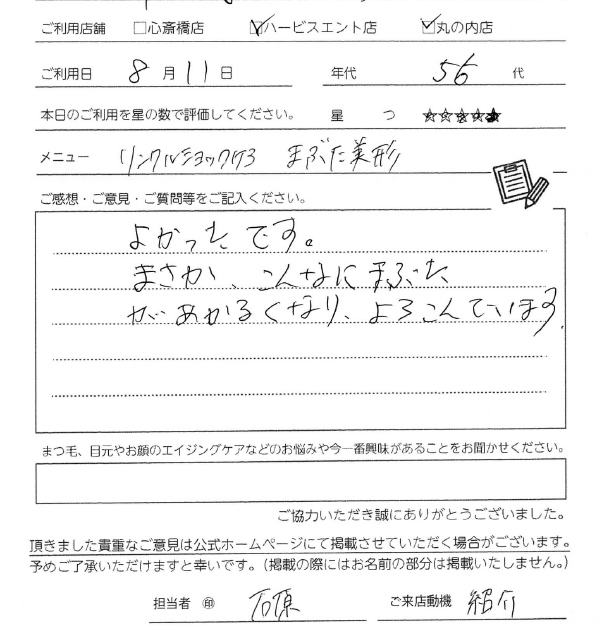 ご利用店舗 □心斎橋店 ☑ハービスエント店 ☑丸の内店
ご利用日 8月11日 年代 56代
本日のご利用を星の数で評価してください。 星つ ☆☆☆☆★
メニュー リンクルショック73 まぶた美形
ご感想・ご意見・ご質問等をご記入ください。
よかったです。
まさか、こんなにまぶた
があかるくなり、よろこんでいます。
まつ毛、目元やお顔のエイジングケアなどのお悩みや今一番興味があることをお聞かせください。
ご協力いただき誠にありがとうございました。
頂きました貴重なご意見は公式ホームページにて掲載させていただく場合がございます。
予めご了承いただけますと幸いです。（掲載の際にはお名前の部分は掲載いたしません。）
担当者 ㊞ 石原 ご来店動機 紹介